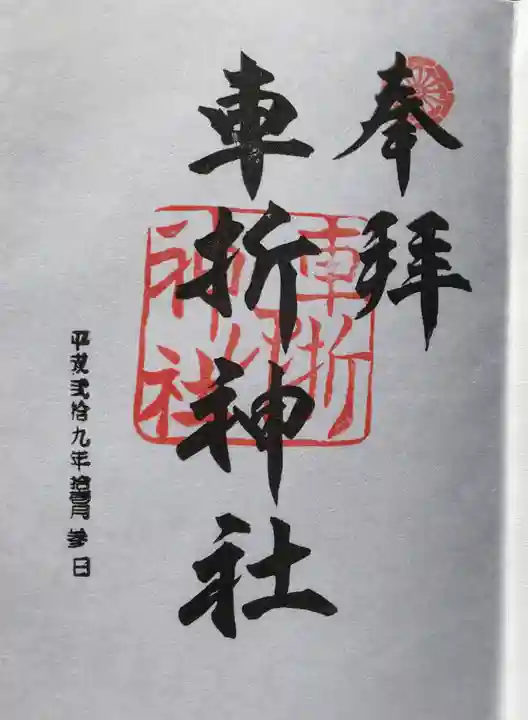 奉拝
車折神社
車折
神社
平成弐拾九年拾壱月参日